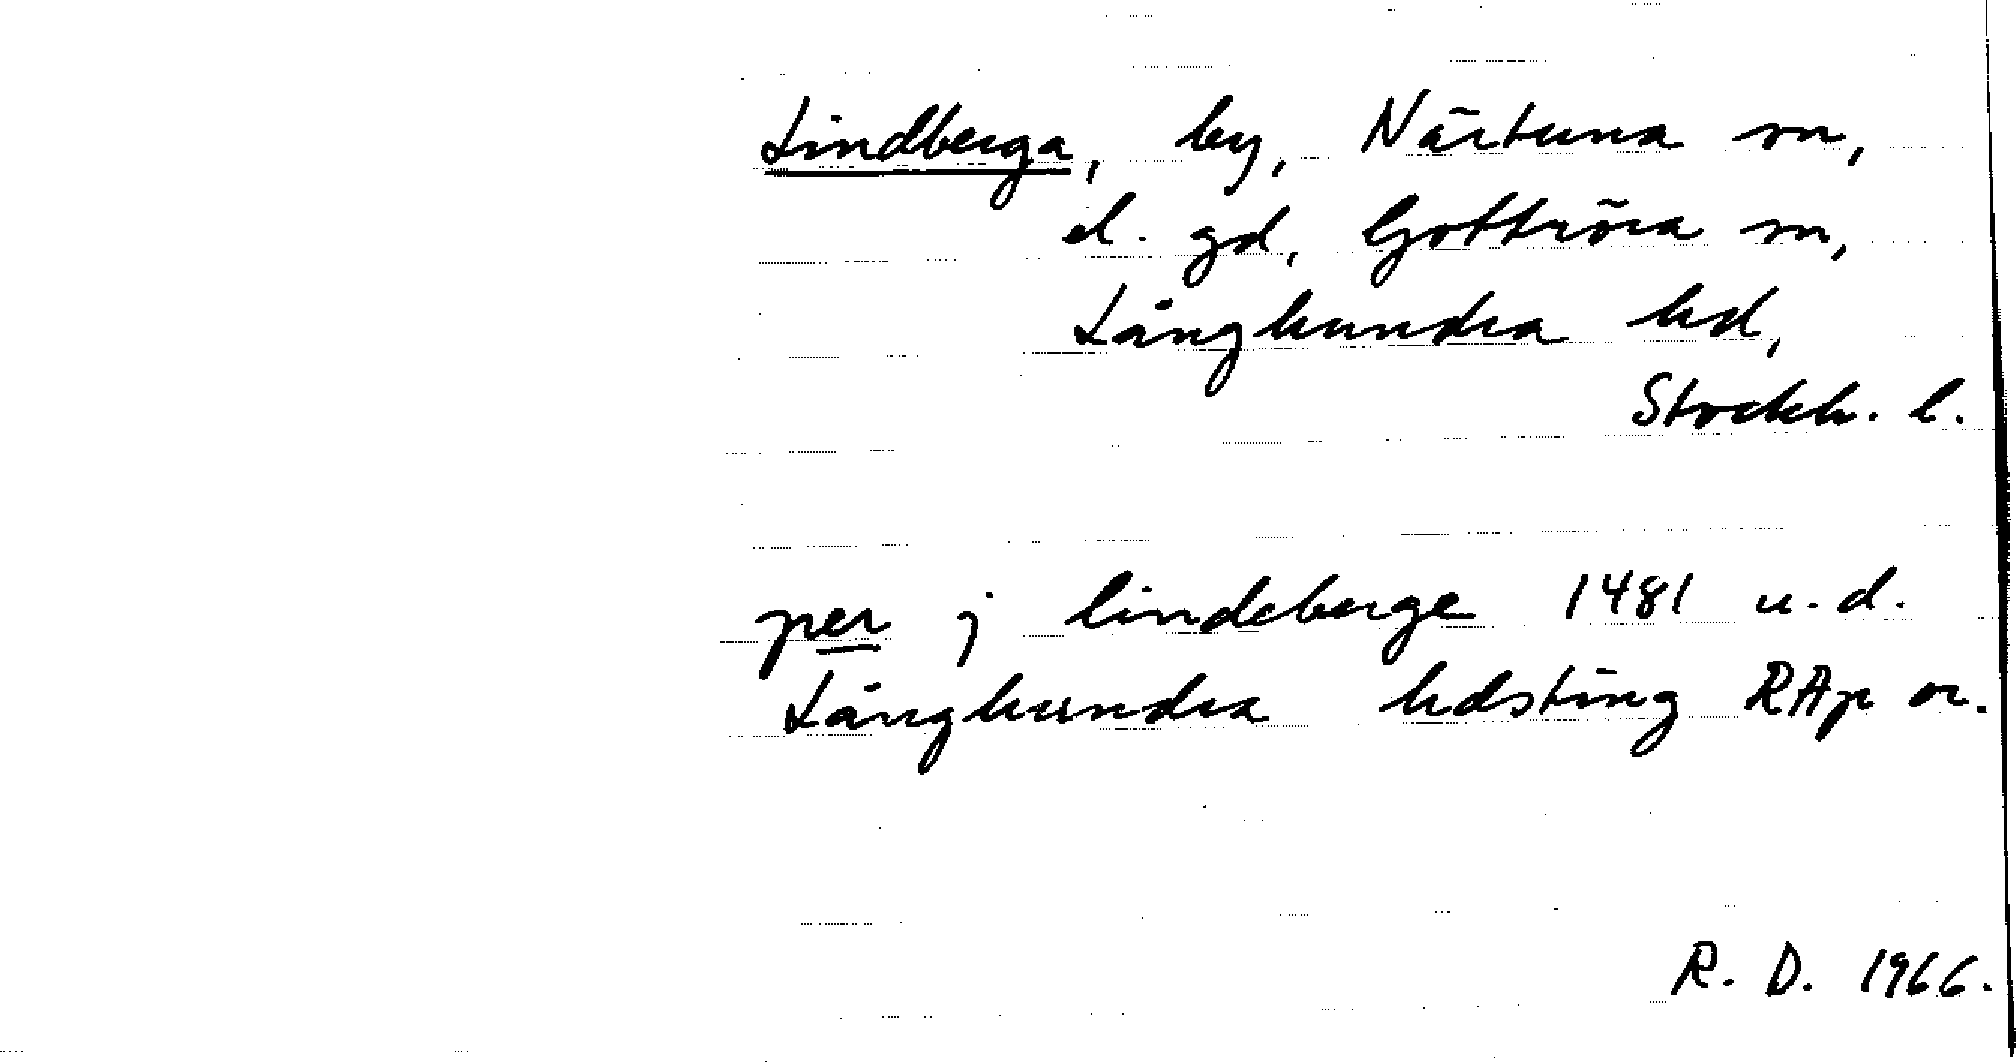 Lindberga, by, Närtuna sn,
el. gd, Gottröra sn,
Långhundra hd,
Stockh. l.
per j lindeberge 1481 u.d.
Långhundra hdsting RAp or.
R. D. 1966.